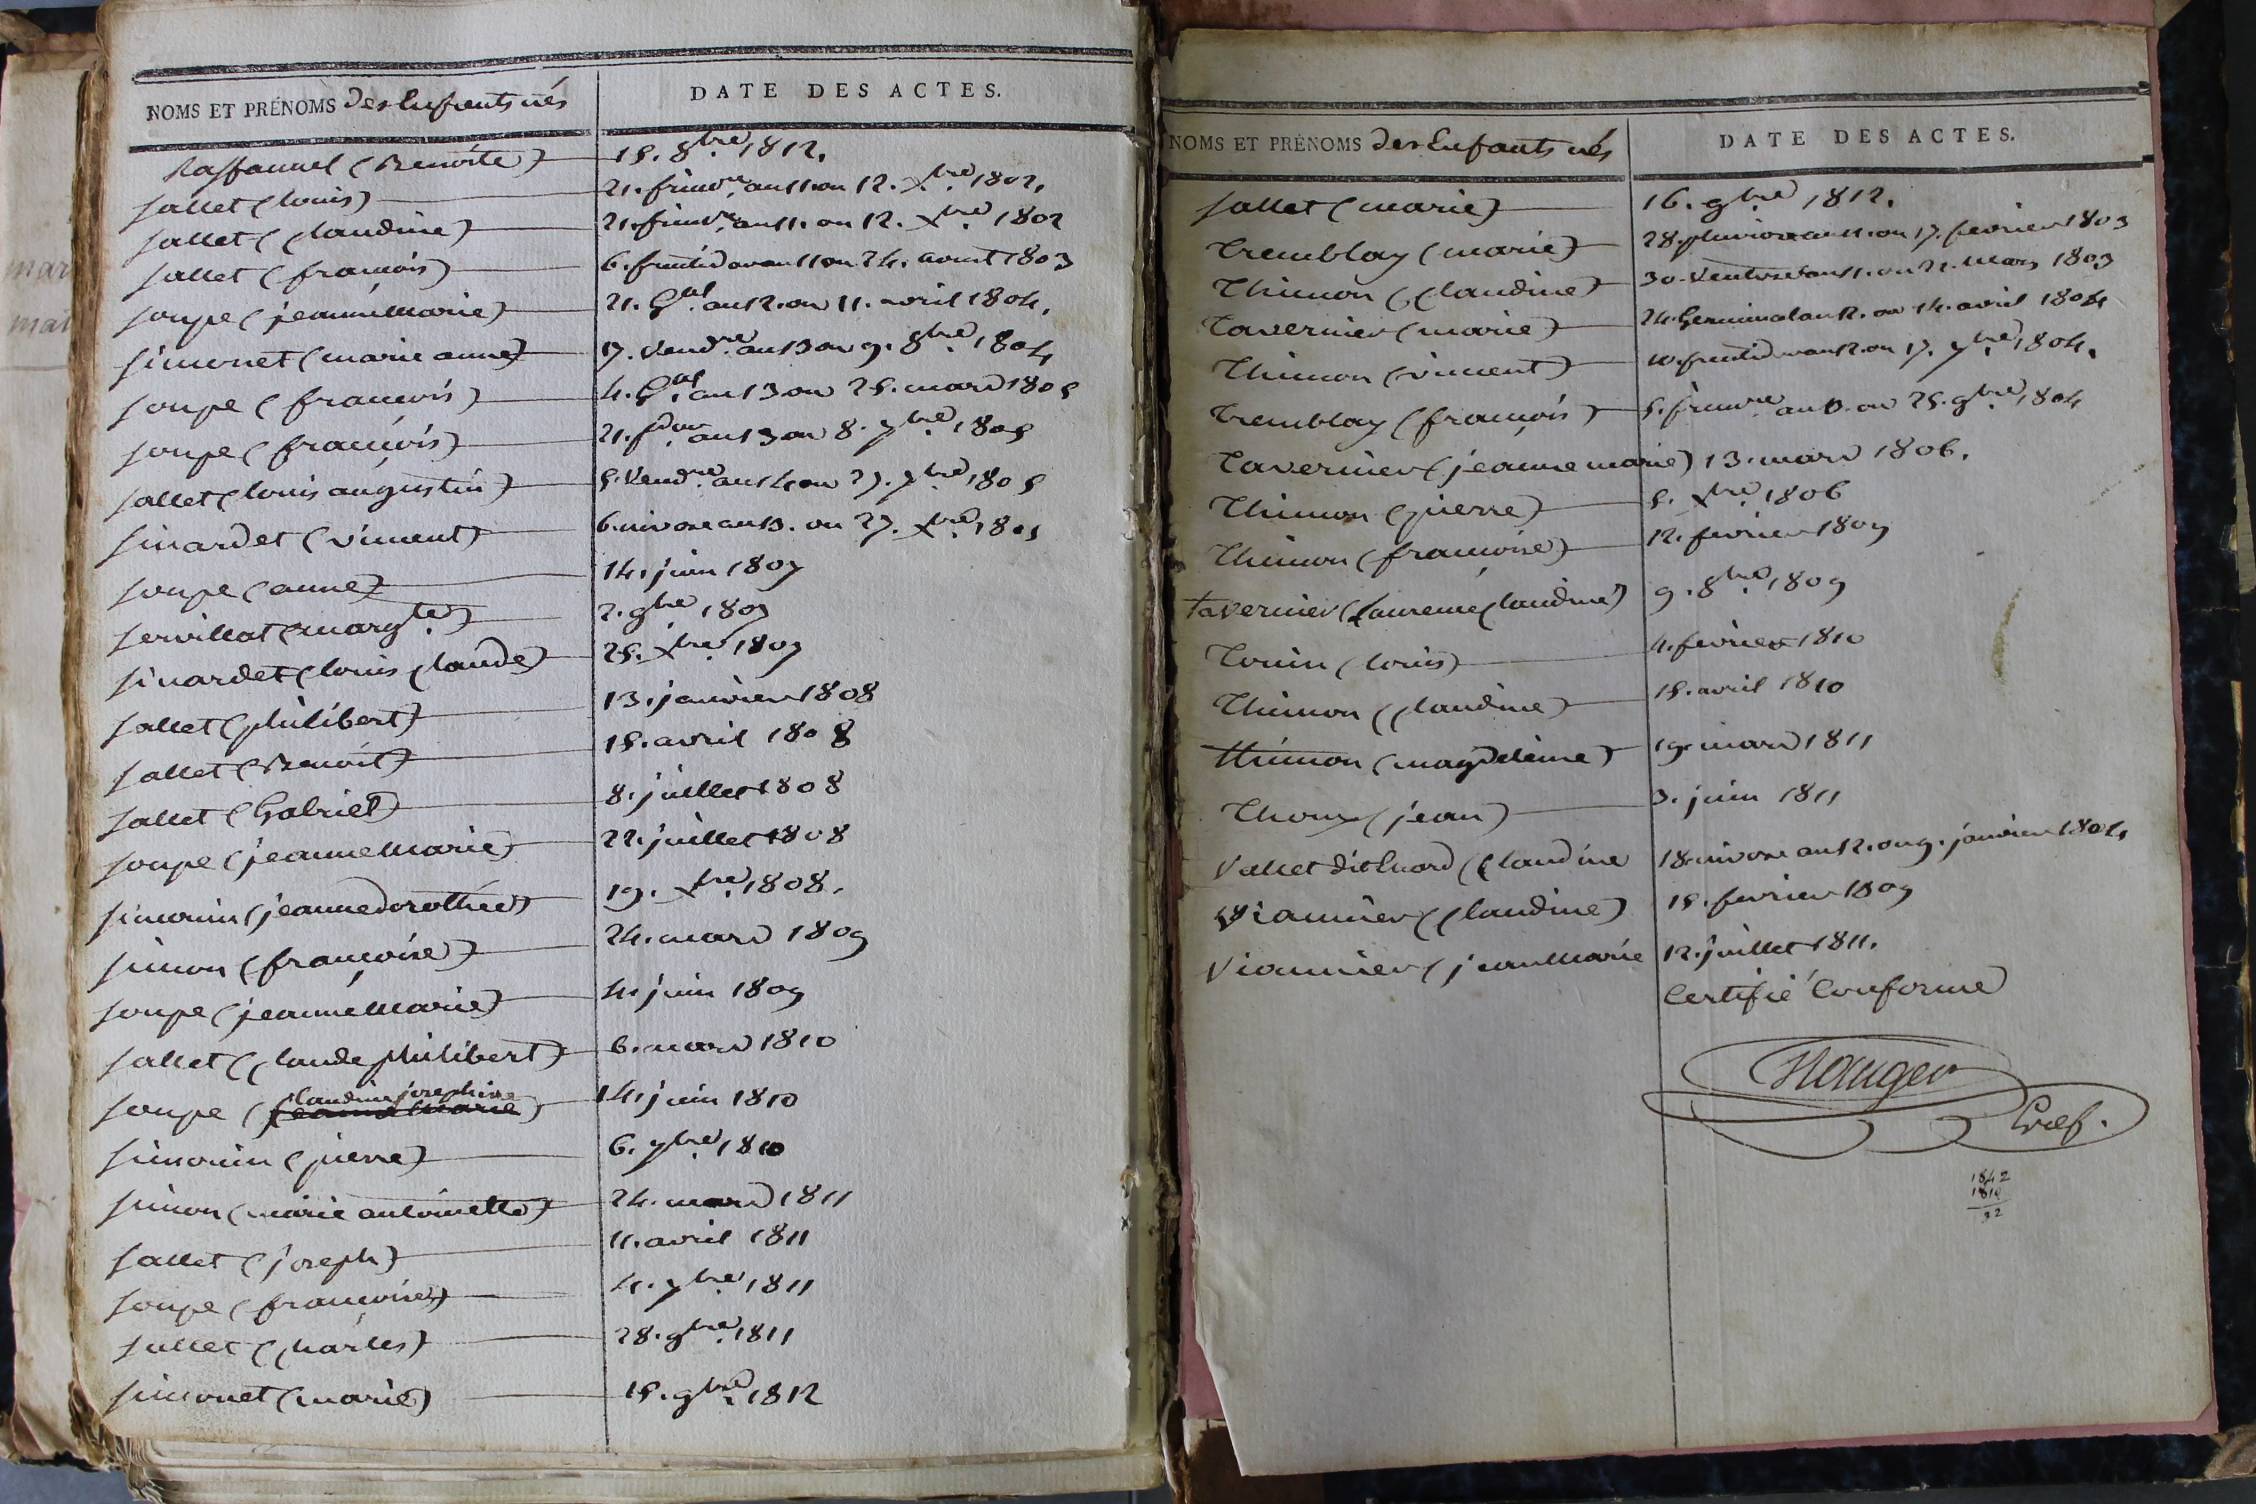 NOMS ET PRÉNOMS des Enfants nés DATE DES ACTES.
Raffannel (Benoite) 15. 8bre 1812.
Sallet (louis) 21. frimre an 11 ou 12. Xbre 1802,
Sallet (Claudine) 21. frimre an 11. ou 12. Xbre 1802
Sallet (françois) 6. fructidor an 11 ou 24. aout 1803
Soupe (jeanne Marie) 21. Gal an 12. ou 11. avril 1804,
Simonet (marie anne) 17. Vendre an 13 ou 9. 8bre 1804
Soupe (françois) 4. Gal an 13 ou 25. mars 1805
Soupe (françois) 21. fdor an 13 ou 8. 7bre 1805
Sallet (louis augustin) 5. Vendre an 14 ou 27. 7bre 1805
Sinardet (vincent) 6. nivose an 13. ou 27. Xbre 1805
Soupe (anne) 14. juin 1807
Servillat (margte) 2. 9bre 1807
Sinardet (louis Claude) 25. Xbre 1807
Sallet (philibert) 13. janvier 1808
Sallet (Benoit) 15. avril 1808
Sallet (Gabriel) 8. juillet 1808
Soupe (jeanne Marie) 22. juillet 1808
Simonin (jeanne dorothée) 19. Xbre 1808.
Simon (françoise) 24. mars 1809
Soupe (jeanne Marie) 4. juin 1809
Sallet (Claude philibert) 6. mars 1810
Claudine josephine
Soupe (jeanne Marie) 14. juin 1810
Simonin (pierre) 6. 7bre 1810
Simon (marie antoinette) 24. mars 1811
Sallet (joseph) 11. avril 1811
Soupe (françoise) 4. 7bre 1811
Sallet (Charles) 28. 9bre 1811
Simonet (marie) 15. 9bre 1812
NOMS ET PRÉNOMS des Enfants nés DATE DES ACTES.
Sallet (marie) 16. 9bre 1812.
Tremblay (marie) 28. pluviose an 11. ou 17. fevrier 1803
Thimon (Claudine) 30. Ventose an 11. ou 21. Mars 1803
Tavernier (marie) 24. Germinal an 12. ou 14. avril 1804
Thimon (vincent) 10. fructidor an 12. ou 17. 7bre 1804.
Tremblay (françois) 5. frimre an 13. ou 25. 9bre 1804
Tavernier (jeanne marie) 13. mars 1806.
Thimon (pierre) 5. Xbre 1806
Thimon (françoise) 12. fevrier 1809
Tavernier (Laurence Claudine) 9. 8bre 1809
Touin (louis) 4. fevrier 1810
Thimon (Claudine) 15. avril 1810
Thimon (magdeleine) 19. mars 1811
Thoux (jean) 3. juin 1811
Vallet dit huard (Claudine 18. nivose an 12. ou 9. janvier 1804
Viannier (Claudine) 15. fevrier 1809
Vionnier (jean Marie 12. juillet 1811.
Certifié Conforme
Mauger
Gref.
1842
1810
32
mar
mar